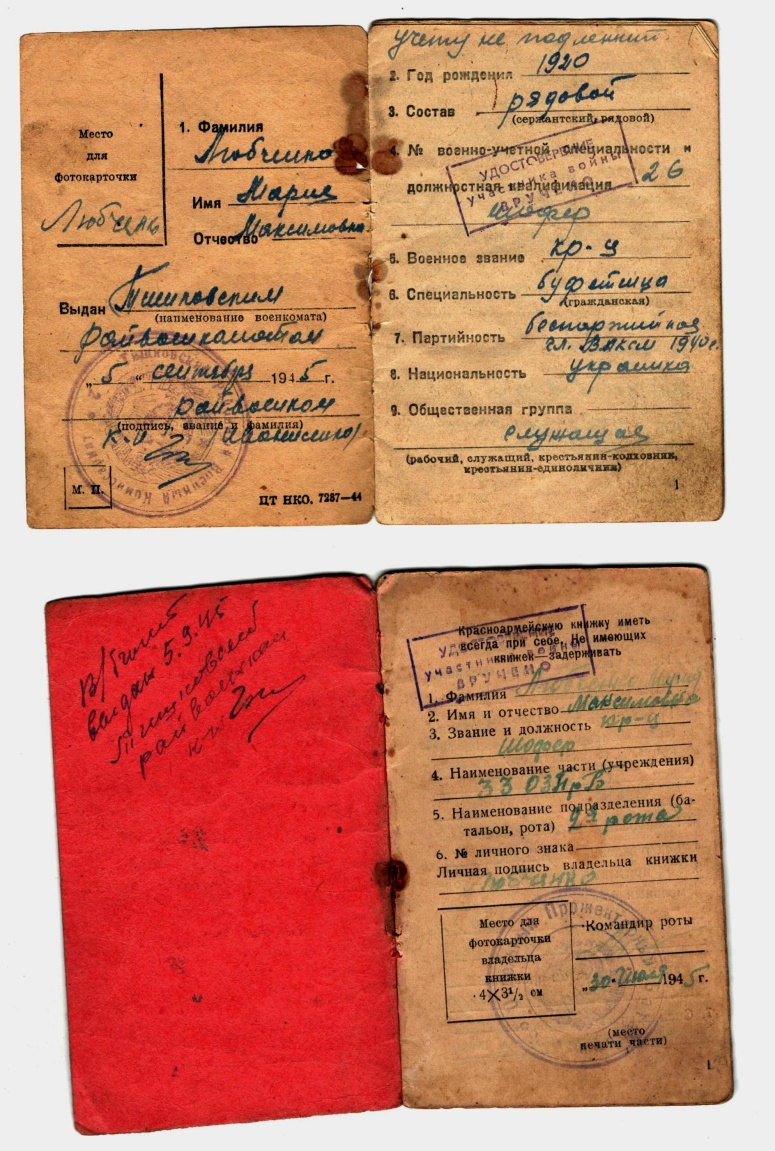 Место
для
фотокарточки
1. Фамилия
Имя Мария
Отчество Максимовна
Выдан
(наименование военкомата)
Райвоенкоматом
„5“ сентября 1945 г.
райвоенком
(подпись, звание и фамилия)
М. П.
ЦТ НКО. 7287—44
учету не подлежит.
2. Год рождения 1920
3. Состав рядовой
(сержантский, рядовой)
4. № военно-учетной специальности и
должностная квалификация 26
шофер
УДОСТОВЕРЕНИЕ
Участника войны
ВРУЧЕНО
5. Военное звание кр-ц
6. Специальность буфетчица
(гражданская)
7. Партийность беспартийная
чл. ВЛКСМ 1940 г.
8. Национальность украинка
9. Общественная группа
служащая
(рабочий, служащий, крестьянин-колхозник,
крестьянин-единоличник)
1
В/билет
выдан 5.9.45
райвоенкомат
Красноармейскую книжку иметь
всегда при себе. Не имеющих
книжек—задерживать
УДОСТОВЕРЕНИЕ
Участника войны
ВРУЧЕНО
1. Фамилия
2. Имя и отчество Максимовна
3. Звание и должность кр-ц
шофер
4. Наименование части (учреждения)
5. Наименование подразделения (ба-
тальон, рота) 9я рота
6. № личного знака
Личная подпись владельца книжки
Место для
фотокарточки
владельца
книжки
4×3½ см
Командир роты
„30“ Июля 1945 г.
(место
печати части)
1